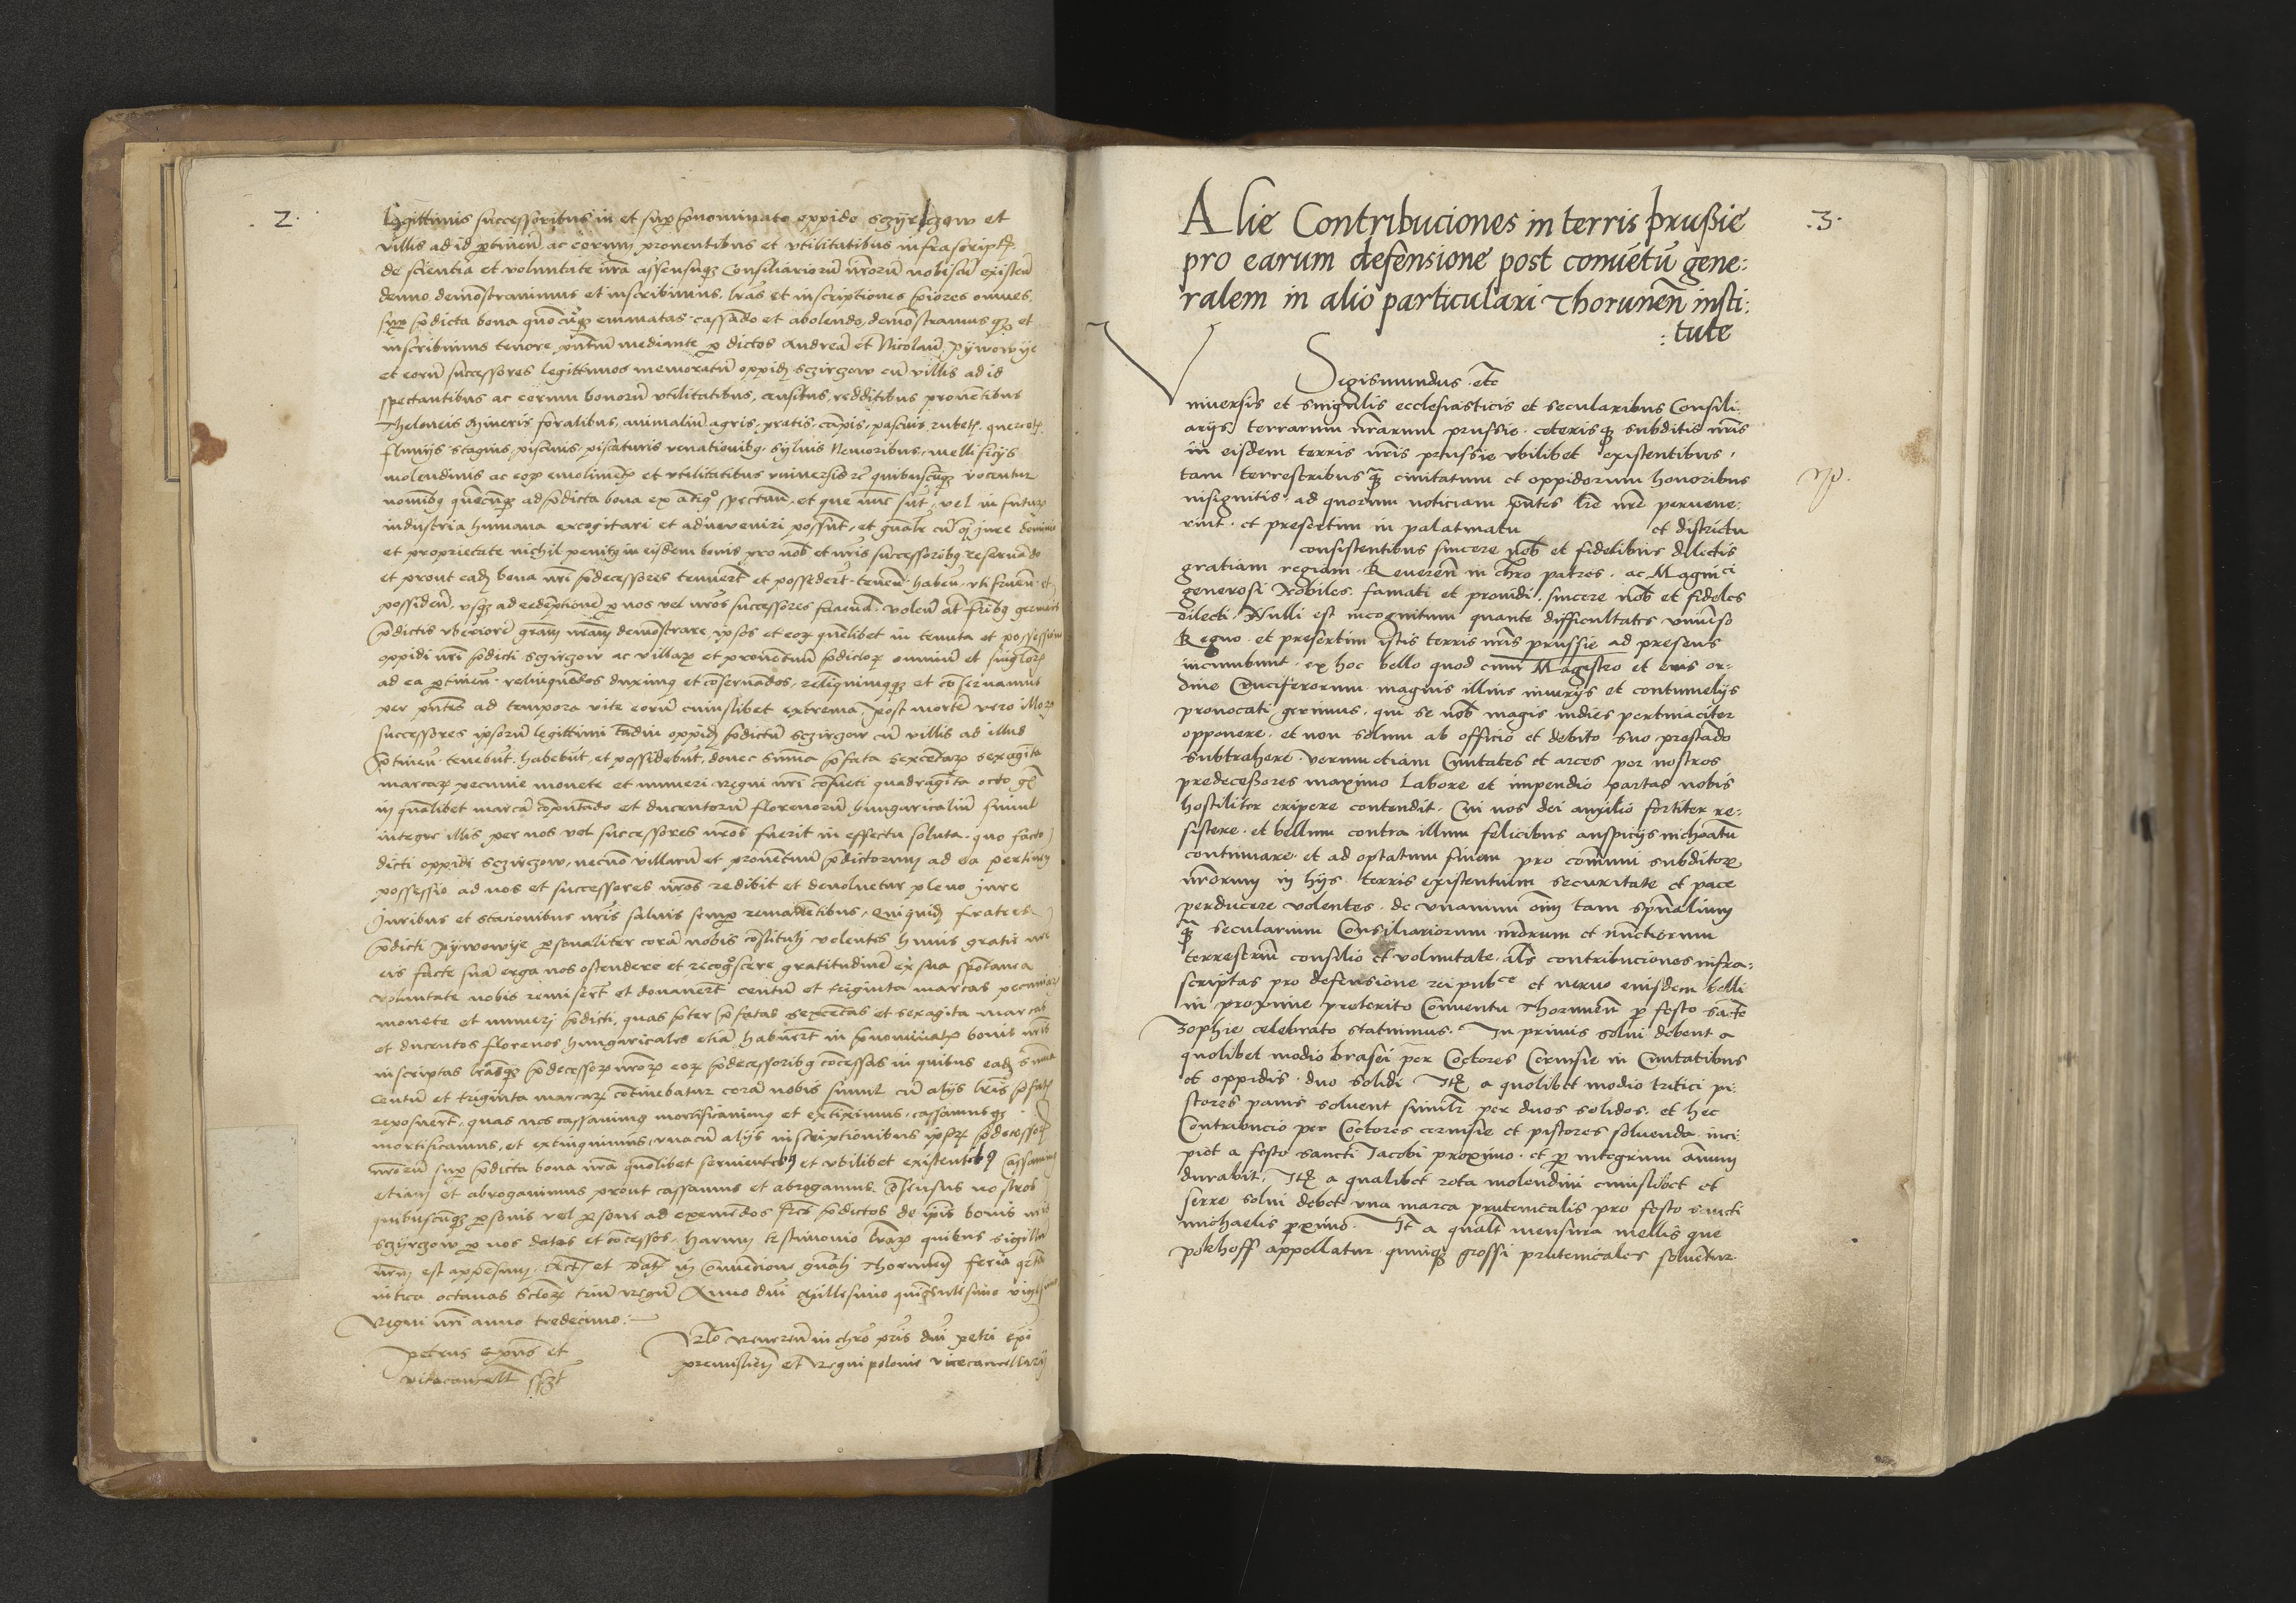 2.
legittimis successoribus in et sup prnominato oppido Sczyrczow et
villis ad id ptinen ac eorum proventibus et utilitatibus infrascriptis
de scientia et voluntate nra assensuq Consiliariorū nrorū nobiscū existen
denuo demonstravimus et inscribimus, lras et inscriptiones priores omnes
sup prdicta bona quocūq emanatas cassando et abolendo, demonstramusq et
inscribimus tenore pntium mediante p dictos Andreā et Nicolaū Pywowye
et eorū successores legittimos memoratū oppidū Sczirczow cū villis ad id
spectantibus ac eorum bonorū utilitatibus, censibus, redditibus proventibus
Theloneis foralibus, animaliū agris, pratis, campis, pascuis rubetis quercetis
fluviis stagnis, piscinis, piscaturis venationibq, sylvis Nemoribus, mellificiis
molendinis ac eorum emolimentis et utilitatibus universis quibuscūq vocentur
nominibq quecūq ad prdicta bona ex antiquo spectant, et que nunc sūt, vel in futurū
industria humana excogitari et adinveniri possunt, et jure
et proprietate nichil penitq in eisdem bonis pro nob et nris successoribq reservando
et prout eadē bona nri prdecessores tenuert et possedert, tenent haben utifruen et
possiden, usq ad redemptionē p nos vel nros successores faciendā. volen
prdictis uberiorē gratiam nram demonstrare, ipsos et eor quēlibet in tenuta et possessione
oppidi nri prdicti Sczirczow ac villarum et proventuū prdictorum omniū et singlorum
ad ea ptinen relinquēdos duximq et cōservandos, relinquimqq et cōservamus
per pntes ad tempora vite eorū cuiuslibet extrema, Post mortē vero illorum
successores ipsorū legittimi tandiu oppidū prdictū Sczirczow cū villis ad illud
ptinen tenebūt, habebūt, et possidebūt, donec sūma prfata sexcētarum sexagīta
marcarum pecunie monete et numeri regni nri cōsueti quadragīta octo
in qualibet marca cōputādo et ducentorū florenorū hungaricaliū simul
integre illis per nos vel successores nros fuerit in effectu soluta. quo facto
dicti oppidi Sczirczow, necnō villarū et proventuū prdictorum ad ea pertinen
possessio ad nos et successores nros redibit et devolvetur pleno jure
Juribus et stacionibus nris salvis semp remanentibus, Quiquidē fratres
prdicti Pywowye psonaliter corā nobis cōstituti volentes huius gratie nre
eis facte suā erga nos ostendere et recogoscere gratitudinē ex sua spōtanea
voluntate nobis remisert et donavert centū et triginta marcas pecuniarum
monete et numeri prdicti, quas prter prfatas sexcentas et sexagīta marcas
et ducentos florenos hungaricales etiā habuert in prnominatis bonis nris
inscriptas lrasq prdecessorum nrorum eorum prdecessoribq cōcessas in quibus eadē sūma
centū et triginta marcarum cōtinebatur corā nobis simul cū alys lris prfatis
reposuert, quas nos cassavimq mortificavimq et extinximus, cassamusq
mortificamus, et extinguimus, unacū alys inscriptionibus ipsorum prdecessorum
nrorū sup prdicta bona nra quolibet servientibq et ubilibet existentibq Cassavimq
etiam et abrogavimus prout cassamus et abrogamus, cōsensus nostros
quibuscūq psonis vel psone ad eximēdos prdictos de ipsis bonis nris
Sczyrzow p nos datos et cōcessos. Harum testimonio lrarum quibus sigillū
nrm est appensum. Actū et Datū in Conventione gnali Thorunen feria
infra octavas sctorum triū regū Anno dni Millesimo quīgentesimo vigesimo
Regni nri anno tredecimo:
Petrus eps et
vicecancell sszt
Rlo reveren in chro pris dni petri epi
premislien et regni polonie vicecancellarii
3.
Alie Contribuciones in terris prussie
pro earum defensione post conuētū gene:
ralem in alio particulari Thorunen insti:
:tute
Segismundus etc
Universis et singulis ecclesiasticis et secularibus Consili
ariys terrarum nrarum prussie ceterisq subditis nris
in eisdem terris nris prussie ubilibet existentibus,
tam terrestribus q civitatum et oppidorum honoribus
insignitis, ad quorum noticiam pntes lre nre pervene:
rint. et presertim in palatinatu et districtu
consistentibus sincere nob et fidelibus dilectis
gratiam regiam. Reveren in chro patres, ac Magnici
generosi Nobiles, famati et providi, sincere nob et fideles
dilecti. Nulli est incognitum quante difficultates universo
Regno et presertim istis terris nris prussie ad presens
incumbunt, ex hoc bello quod cum Magistro et eius or:
dine Cruciferorum magnis illius iniuriis et contumeliis
provocati gerimus, qui se nob magis indies pertinaciter
opponere, et non solum ab officio et debito suo prestādo
subtrahere, verum etiam Civitates et arces per nostros
predecessores maximo labore et impendio partas nobis
hostiliter eripere contendit. Cui nos dei auxilio fortiter re:
sistere, et bellum contra illum felicibus auspiciis inchoatū
continuare, et ad optatum finem pro communi subditorum
nrorum in hys terris existentium securitate et pace
perducere volentes, de unanimi omn tam spualium
q secularium Consiliariorum nrorum et nunctiorum
terrestriū consilio et voluntate, als contribuciones infra=
scriptas pro defensione rei pubce et nervo eiusdem belli
in proxime preterito Conventu Thorunen p festo sancte
Zophie celebrato statuimus. In primis solvi debent a
quolibet modio brasei per Coctores Cervisie in Civitatibus
et oppidis duo solidi Ite a quolibet modio tritici pi
stores panis solvent similr per duos solidos. et hec
Contribucio per Coctores cervisie et pistores solvenda inci
piet a festo sancti Jacobi proximo et p integrum annum
durabit, Ite a qualibet rota molendini cuiuslibet et
serre solvi debet una marca prutenicalis pro festo sancti
michaelis proximo. It a qualt mensura mellis que
pokhoff appellatur quinq grossi prutenicales solventur.